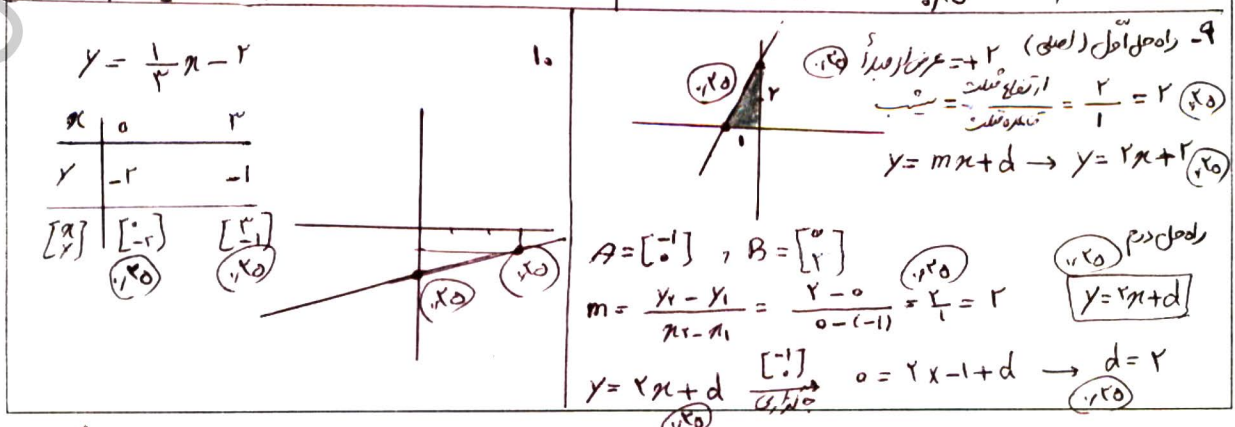 ۹- راه حل اوّل (اصلی) عرض از مبدأ = +۲ ۰٫۲۵
شیب = ارتفاع مثلث / قاعده مثلث = ۲/۱ = ۲ ۰٫۲۵
۰٫۲۵
۲
۱
y = mx + d → y = ۲x + ۲ ۰٫۲۵
راه حل دوم
A = [-۱ ۰] , B = [۰ ۲]
m = (y₂ - y₁)/(x₂ - x₁) = (۲ - ۰)/(۰ - (-۱)) = ۲/۱ = ۲ ۰٫۲۵
۰٫۲۵ y = ۲x + d
y = ۲x + d ۰٫۲۵ [-۱ ۰] جایگذاری → ۰ = ۲ × -۱ + d → d = ۲ ۰٫۲۵
۱۰
y = ۱/۳ x - ۲
x ۰ ۳
y -۲ -۱
[x y] [۰ -۲] [۳ -۱]
۰٫۲۵ ۰٫۲۵
۰٫۲۵ ۰٫۲۵